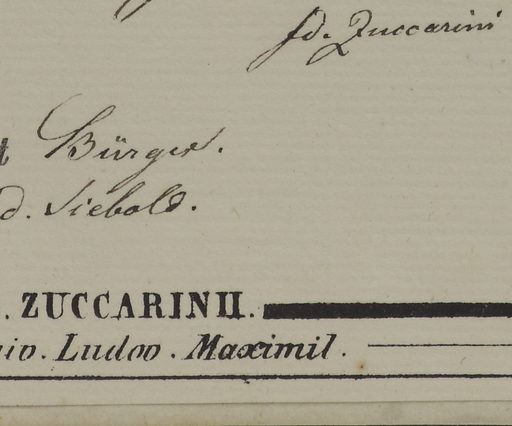 Jd. Zuccarini
Bürger.
d. Siebold.
. ZUCCARINII.
niv. Ludov. Maximil.